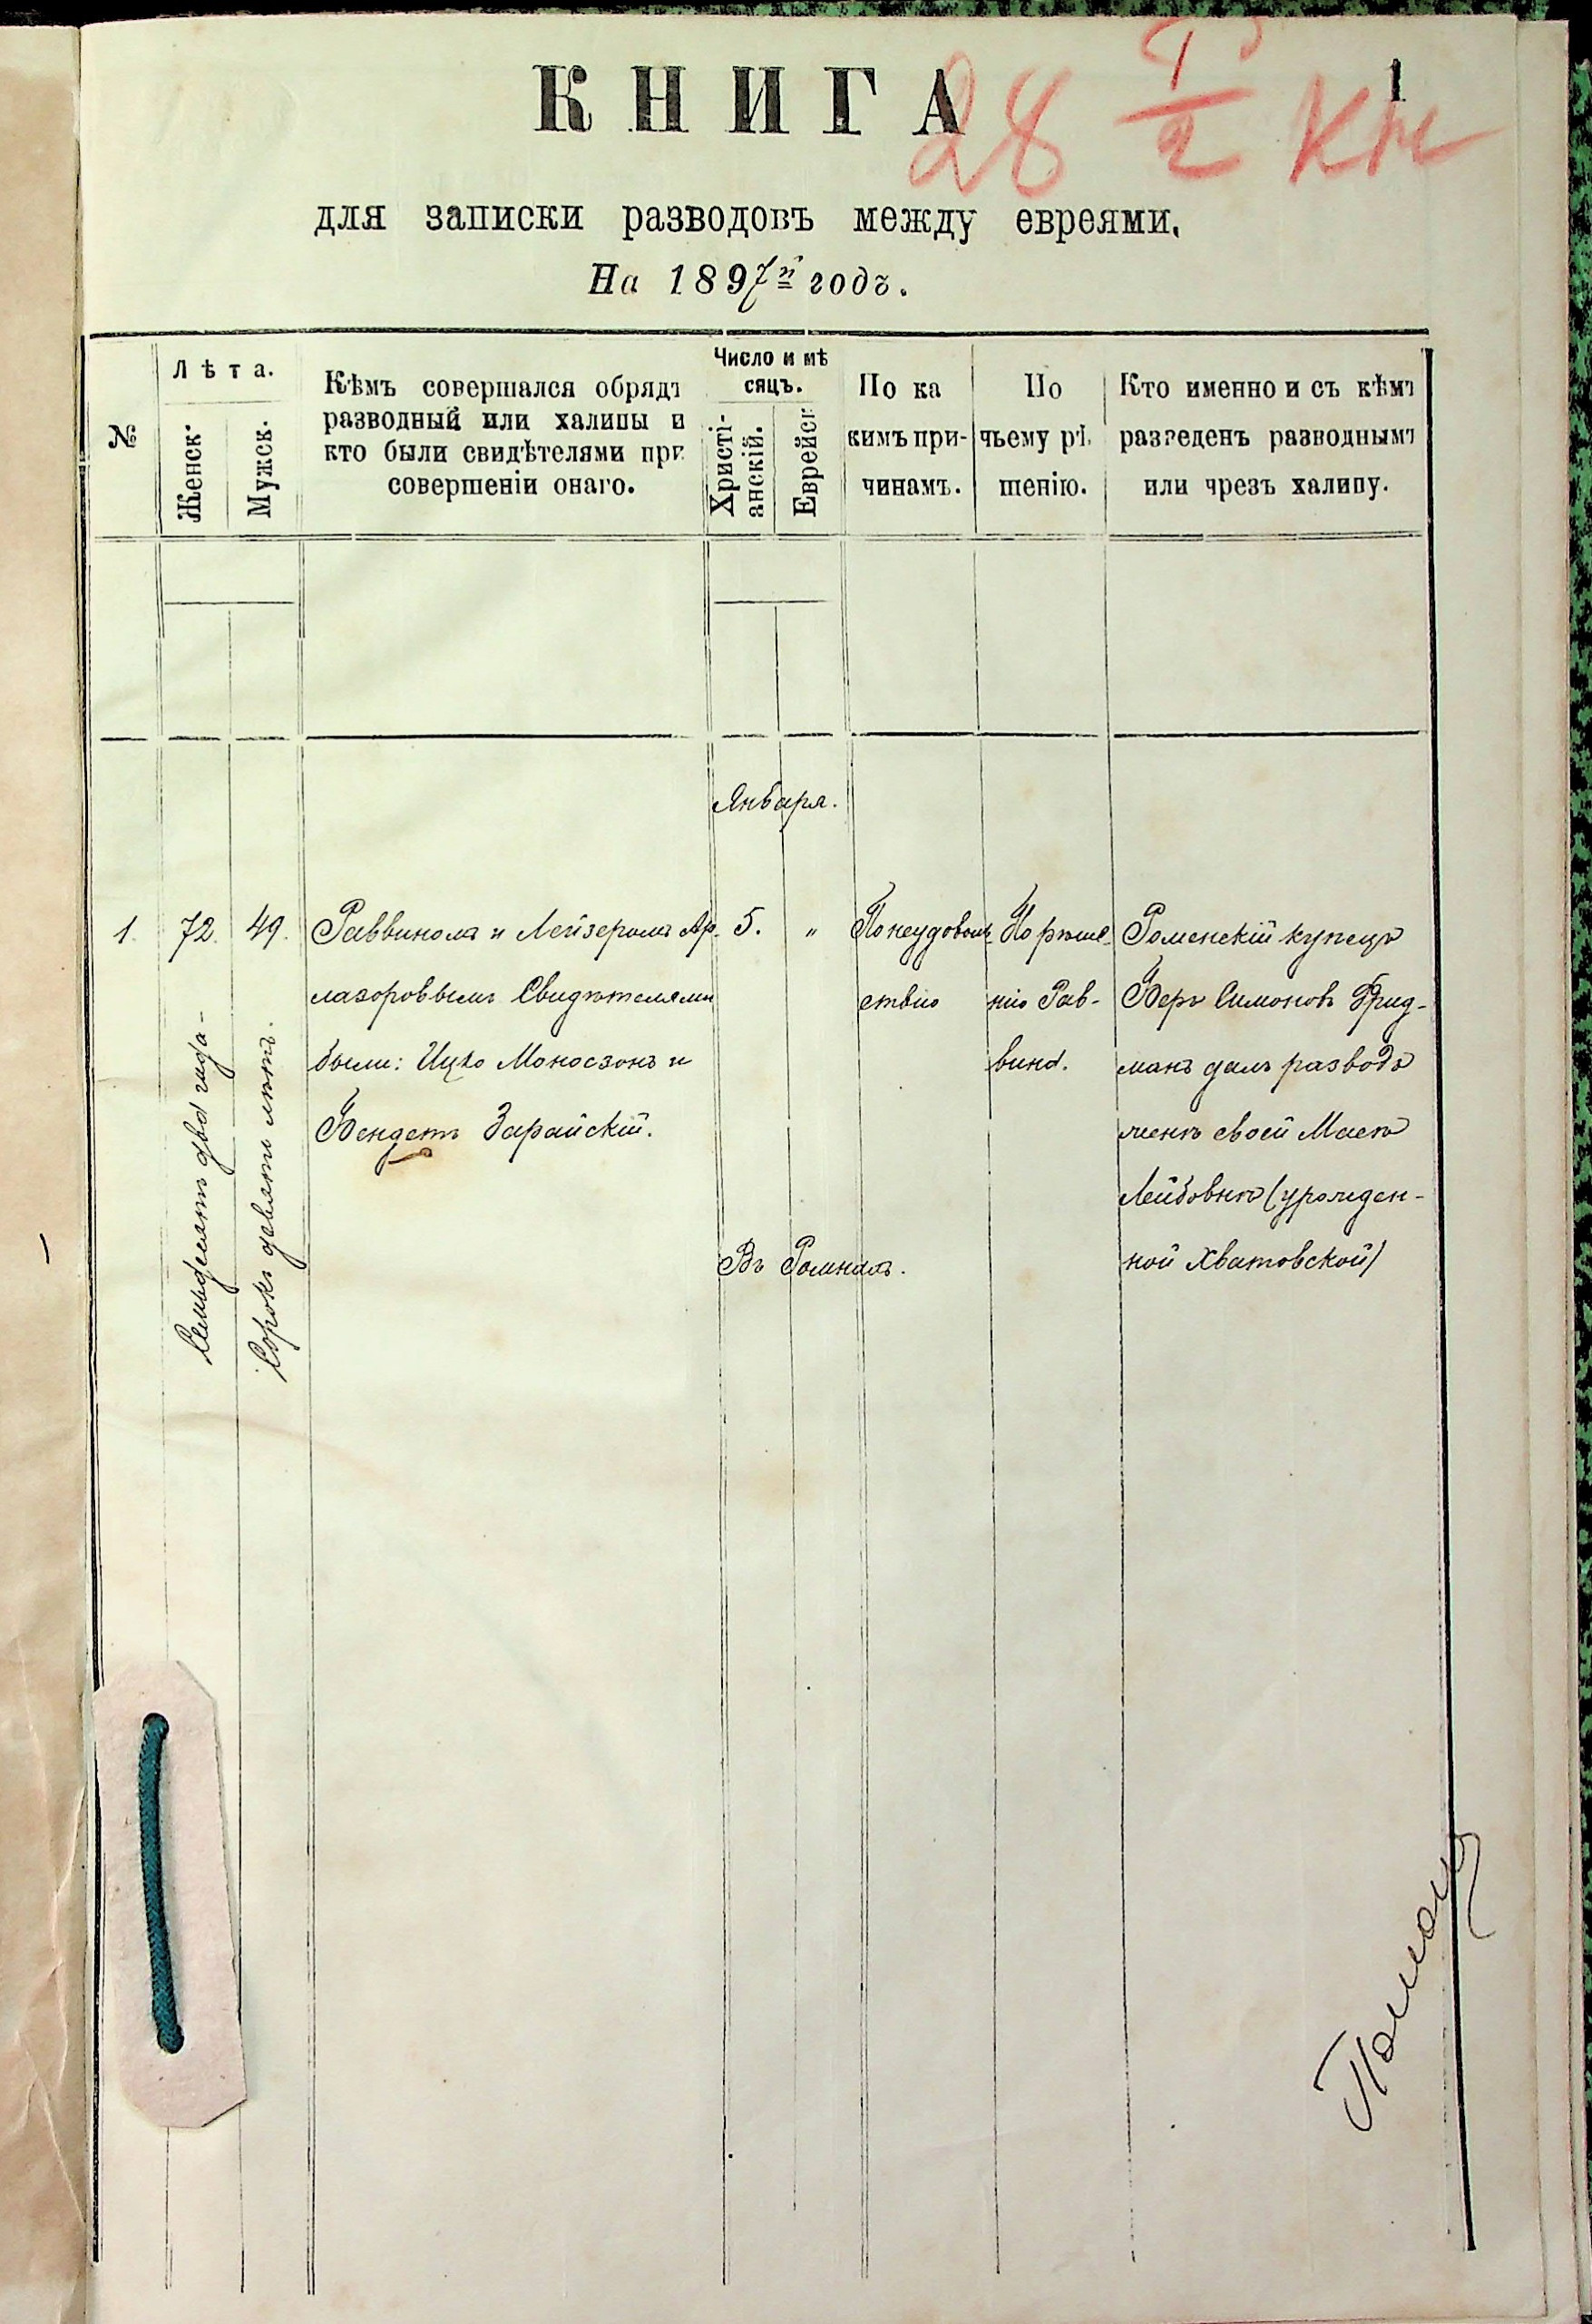 КНИГА
1
28 1/2 кн
для записки разводовъ между евреями.
На 1897й годъ.
№
Лѣта.
Женск.
Мужск.
Кѣмъ совершался обрядъ
разводный или халицы и
кто были свидѣтелями при
совершеніи онаго.
Число и мѣ
сяцъ.
Христі-
анскій.
Еврейск
По ка
кимъ при-
чинамъ.
По
чьему рѣ
шенію.
Кто именно и съ кѣмъ
разведенъ разводнымъ
или чрезъ халицу.
Января.
1.
72.
Семьдесятъ два года
49.
Сорокъ девять лѣтъ.
Раввиномъ и Лейзеромъ Ар-
лазоровымъ Свидѣтелями
были: Ицко Моносзонъ и
Бендетъ Зарайскій.
5.
"
Въ Ромнахъ.
По неудоволь
ствію
По рѣше-
нію Рав-
вина.
Роменскій купецъ
Беръ Симоновъ Фрид-
манъ далъ разводъ
женѣ своей Масѣ
Лейбовнѣ (урожден-
ной Хватовской)